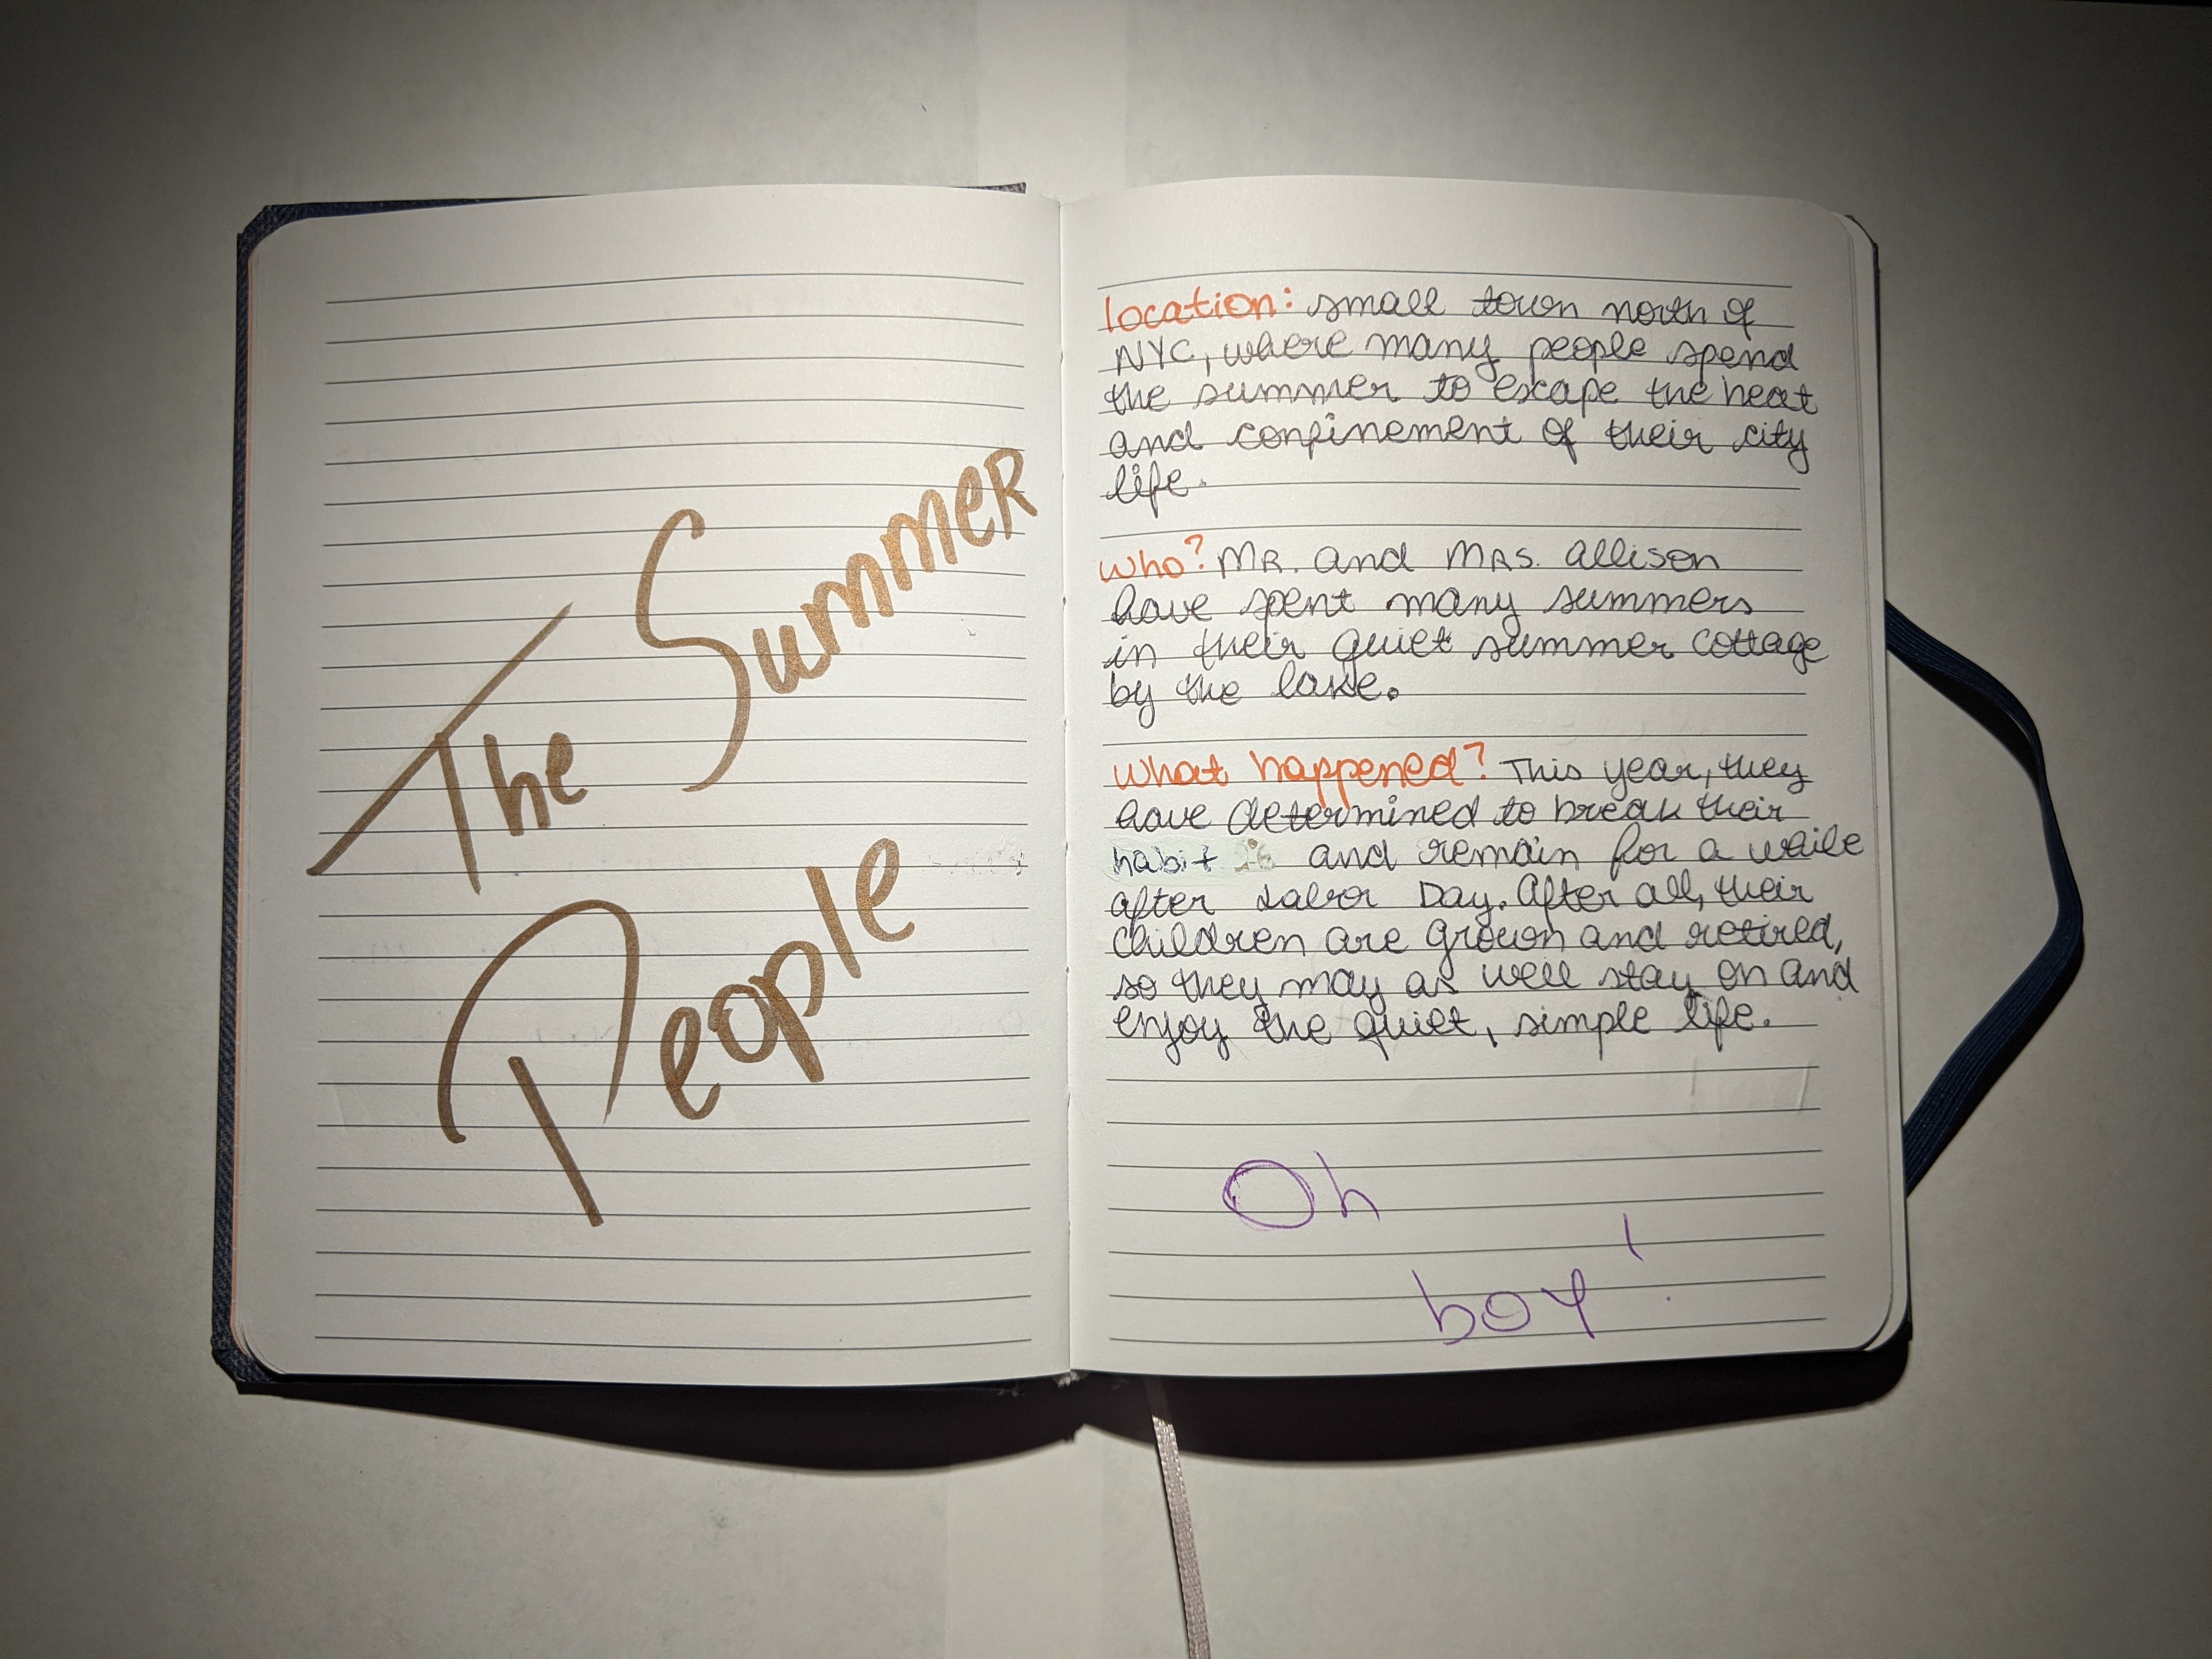 The Summer
People
location: small town north of
NYC, where many people spend
the summer to escape the heat
and confinement of their city
life.
Who? MR. and MRS. Allison
have spent many summers
in their quiet summer cottage
by the lake.
What happened? This year, they
have determined to break their
habit and remain for a while
after Labor Day. After all, their
children are grown and retired,
so they may as well stay on and
enjoy the quiet, simple life.
Oh
boy!